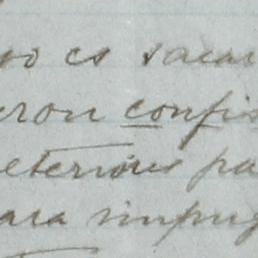 so es sacar
eron confis
eterioris pa
ara impug